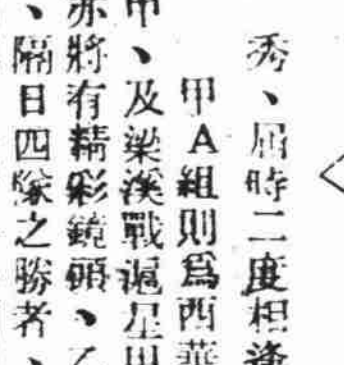 秀、屆時二度相逢
甲A組則爲西華
甲、及梁溪戰滬星
亦將有精彩鏡頭、乙
、隔日四隊之勝者、